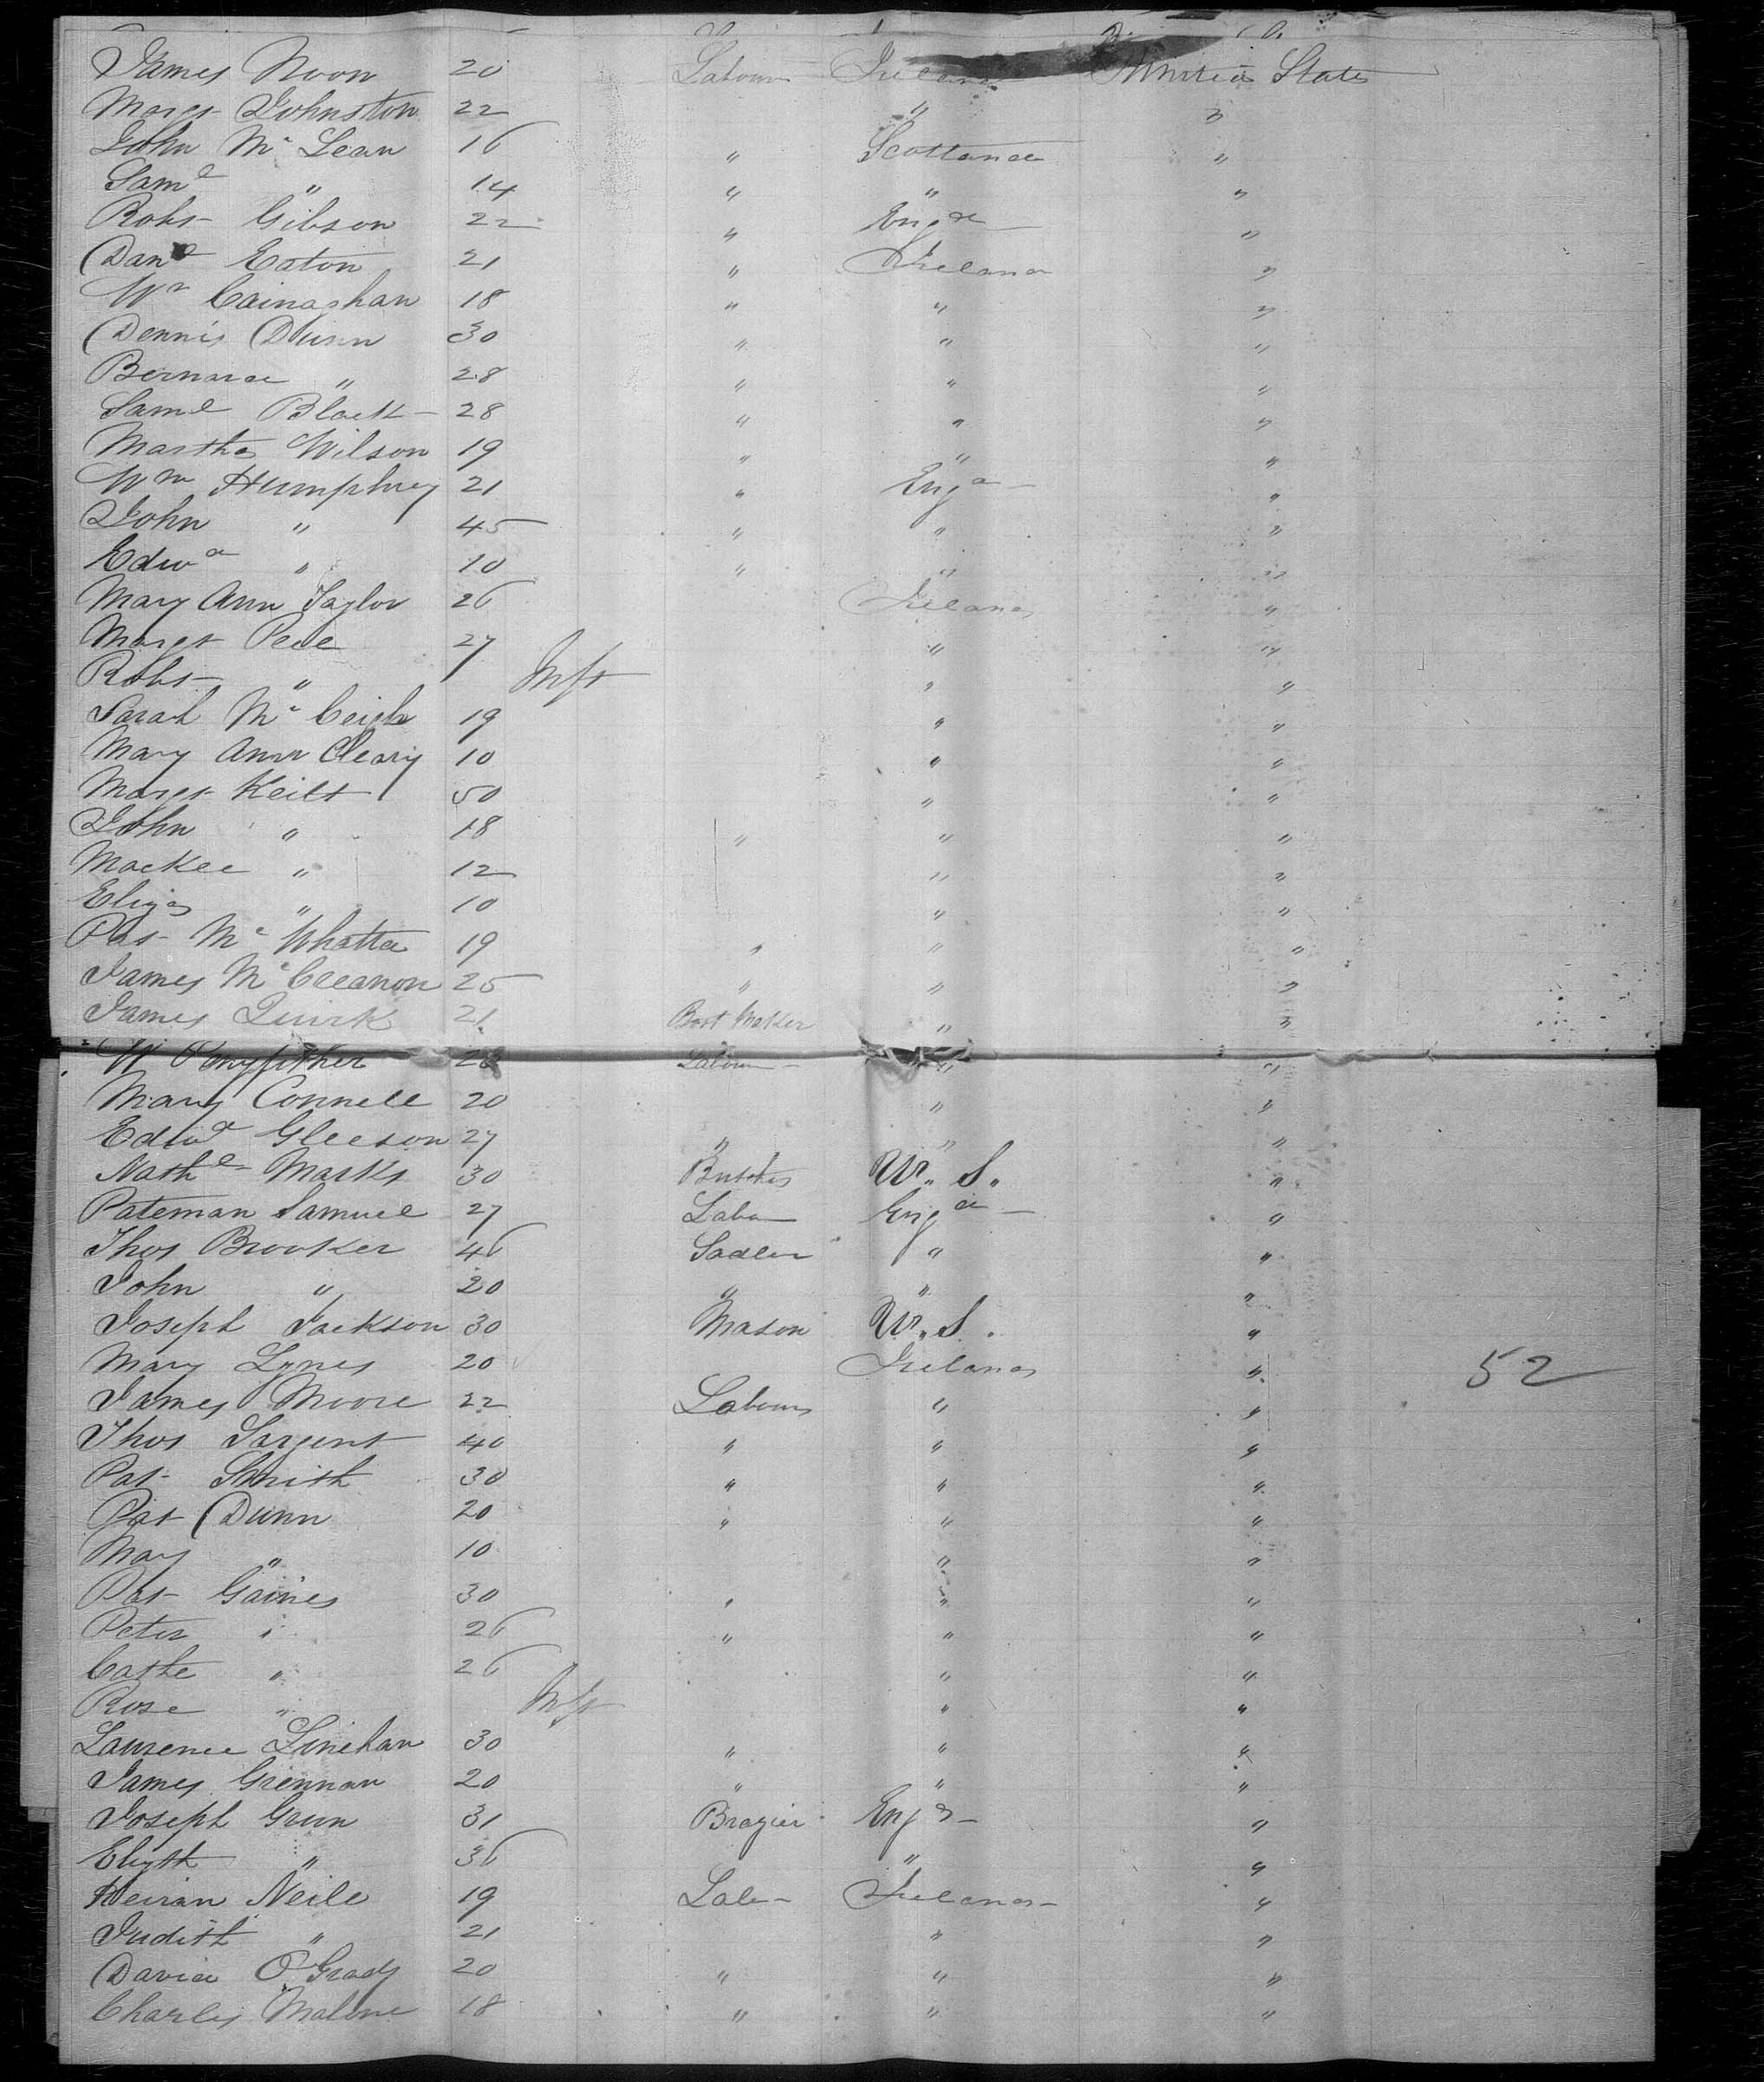 James Noon 20 Labour Ireland United States
Margt Johnston 22 " "
John Mc Lean 16 " Scotland "
Saml " 14 " " "
Robt Gibson 22 " Engd "
Danl Eaton 21 " Ireland "
Wm 18 " " "
Dennis Dunn 30 " " "
Bernard " 28 " " "
Saml Black 28 " " "
Martha Wilson 19 " " "
Wm Humphrey 21 " Engd "
John " 45 " " "
Edwd " 10 " " "
Mary Ann Taylor 26 Ireland "
Margt 27 " "
Robt " Inft " "
Sarah Mc 19 " "
Mary Ann Cleary 10 " "
Margt Keilt 50 " "
John " 18 " " "
Mackee " 12 " "
Eliza " 10 " "
Pat Mc Whatta 19 " " "
James Mc 25 " " "
James Quirk 21 Boot Maker " "
W 26 Labour " "
Mary Connell 20 " "
Edwd Gleeson 27 " " "
Nathl Marks 30 Butcher U. S. "
Pateman Samuel 27 Labo Engd "
Thos Brooker 46 Sadler " "
John " 20 " " "
Joseph Jackson 30 Mason U. S. "
Mary Lynes 20 Ireland "
James Moore 22 Labour " " 52
Thos Sargent 40 " " "
Pat Smith 30 " " "
Pat Dunn 20 " " "
May " 10 " "
Pat Gaines 30 " " "
Peter " 26 " " "
Cathe " 26 " "
Rose " Inft " "
Laurence Linehan 30 " " "
James Grennan 20 " " "
Joseph Grun 31 Brazier Engd "
Elizth " 36 " "
Keiran Neile 19 Labr Ireland "
Judith " 21 " "
David O'Grady 20 " " "
Charles Malone 18 " " "